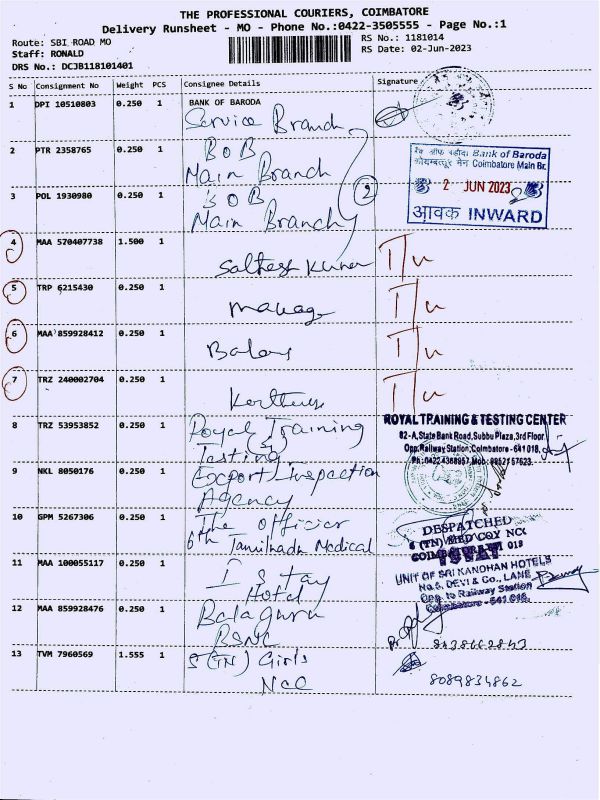 THE PROFESSIONAL COURIERS, COIMBATORE
Delivery Runsheet - MO - Phone No.:0422-3505555 - Page No.:1
Route: SBI ROAD MO
RS No.: 1181014
Staff: RONALD
RS Date: 02-Jun-2023
DRS No.: DCJB118101401
S No Consignment No Weight PCS Consignee Details Signature
1 DPI 10510803 0.250 1 BANK OF BARODA
Service Branch
2 PTR 2358765 0.250 1 BOB
Main Branch
बैंक ऑफ बड़ौदा Bank of Baroda
कोयम्बत्तूर मेन Coimbatore Main Br.
2 JUN 2023
आवक INWARD
3 POL 1930980 0.250 1 BOB
Main Branch
2
4 MAA 570407738 1.500 1
Kumar
5 TRP 6215430 0.250 1
6 MAA 859928412 0.250 1
7 TRZ 240002704 0.250 1
8 TRZ 53953852 0.250 1 Royal Training
Testing
ROYAL TRAINING & TESTING CENTER
82-A, State Bank Road, Subbu Plaza, 3rd Floor
Opp. Railway Station, Coimbatore - 641 018.
9 NKL 8050176 0.250 1 Export Inspection
Agency
10 GPM 5267306 0.250 1 The officier
6th Tamilnadu Medical
DESPATCHED
6 (TN) MED COY NCC
11 MAA 100055117 0.250 1 I stay
Hotel
UNIT OF SRI KANDHAN HOTELS
No.6, DEVI & Co., LANE
Opp. to Railway Station
Coimbatore - 641 018.
12 MAA 859928476 0.250 1 Balaguru
BSNL
13 TVM 7960569 1.555 1 5 (TN) Girls
NCC
8089834862